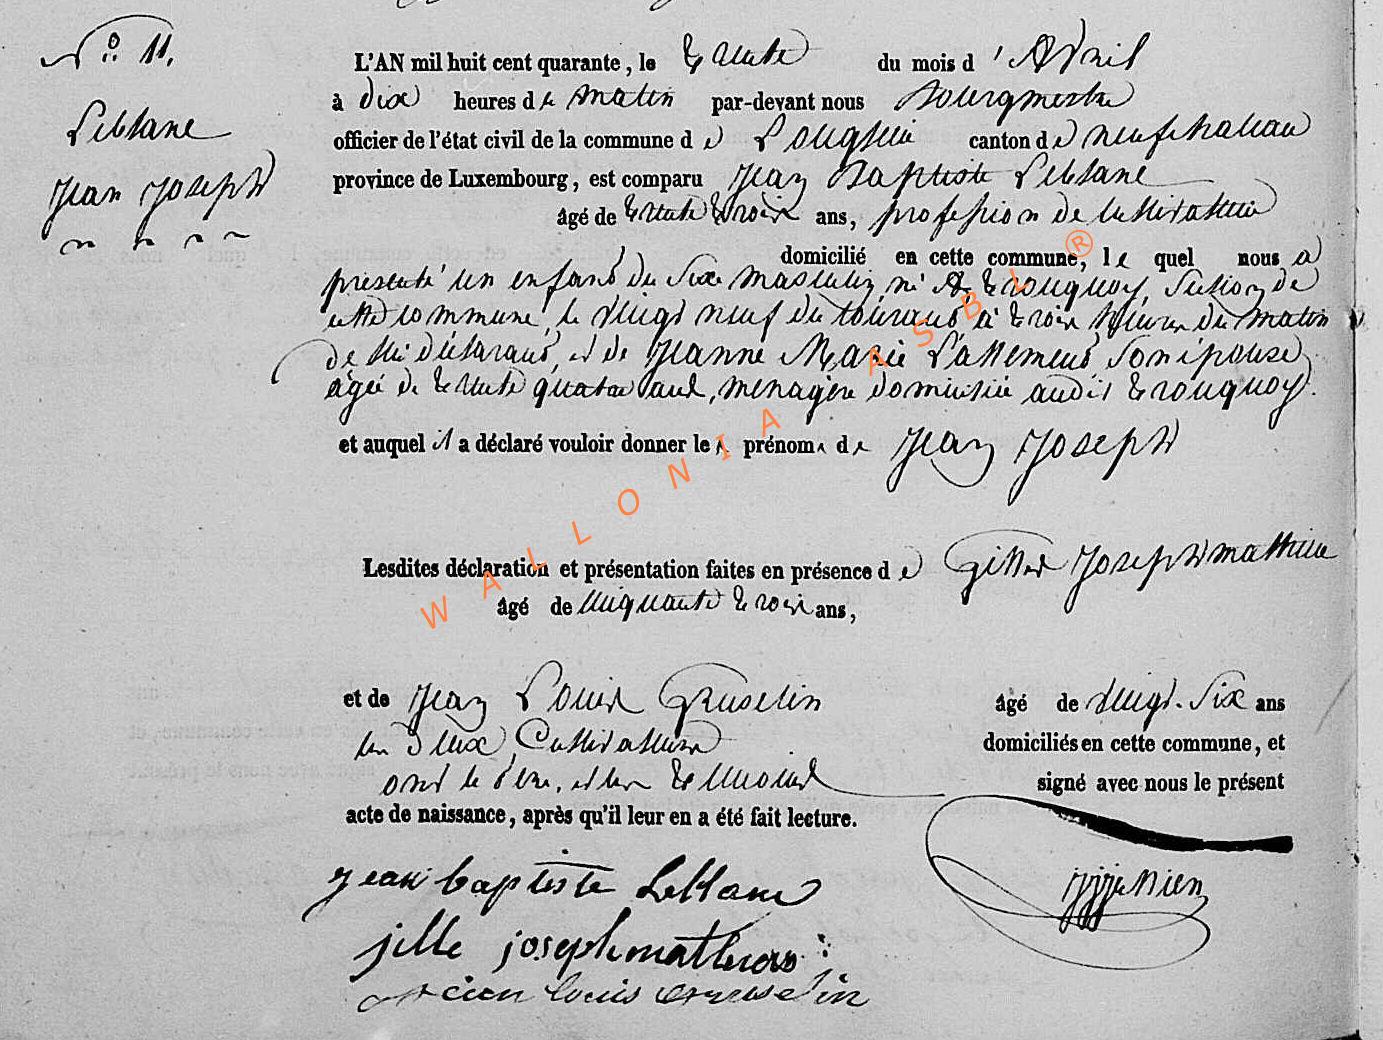 N° 11.
Leblanc
Jean Joseph
L'AN mil huit cent quarante, le trente du mois d'Avril
à dix heures de matin par-devant nous Bourgmestre
officier de l'état civil de la commune de Longlier canton de neufchateau
province de Luxembourg, est comparu Jean Baptiste Leblanc
âgé de trente trois ans, profession de cultivateur
domicilié en cette commune, le quel nous a
presenté un enfant du sexe masculin, né à tronquoy, section de
cette commune, le vingt neuf du courant à trois heures du matin
de lui déclarant, et de Jeanne Marie son épouse
agée de trente quatre ans, menagère domiciliée audit tronquoy.
et auquel il a déclaré vouloir donner les prénoms de Jean Joseph
Lesdites déclaration et présentation faites en présence de Gilles Joseph mathieu
âgé de cinquante trois ans,
et de Jean Louis Gruselin âgé de vingt-six ans
les deux Cultivateurs domiciliés en cette commune, et
ont le père, et les temoins signé avec nous le présent
acte de naissance, après qu'il leur en a été fait lecture.
jean baptiste Leblanc
jille joseph mathieu
jean louis gruselin
WALLONIA ASBL ®